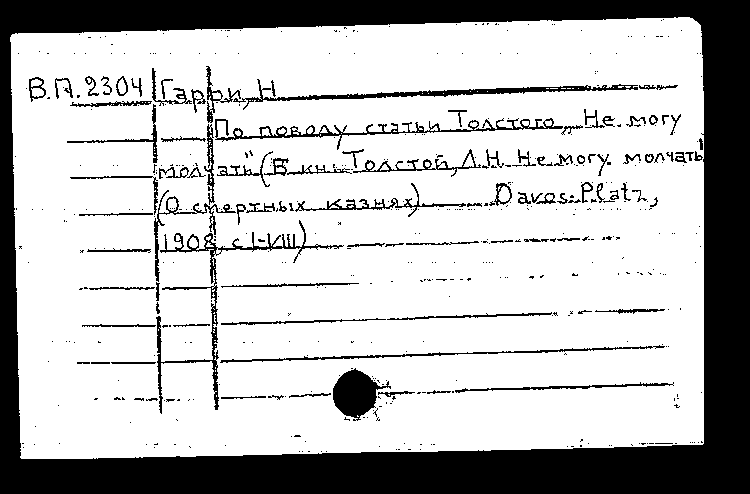 В.П.2304 Гарри, Н
По поводу статьи Толстого „Не могу
молчать" (В кн.: Толстой, Л.Н. Не могу молчать
(О смертных казнях). Davos-Platz,
1908, с I-VIII)